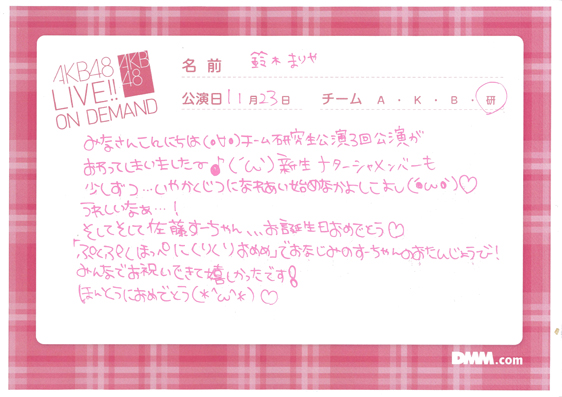 AKB48
LIVE!!
ON DEMAND
AKB
48
名前 鈴木まりや
公演日 11月23日 チーム A・K・B・研
みなさんこんにちは(o∀o)チーム研究生公演3回公演が
おわってしまいましたー♪(´ω`)新生ナターシャメンバーも
少しずつ…いやかくじつになれあい始めなかよしこよし(●ω●)♡
うれしいなぁ…!
そしてそして佐藤すーちゃん、、、お誕生日おめでとう♡
「ぷくぷくほっぺにくりくりおめめ」でおなじみのすーちゃんのおたんじょうび!
みんなでお祝いできて嬉しかったです!
ほんとうにおめでとう(*^ω^*)♡
DMM.com